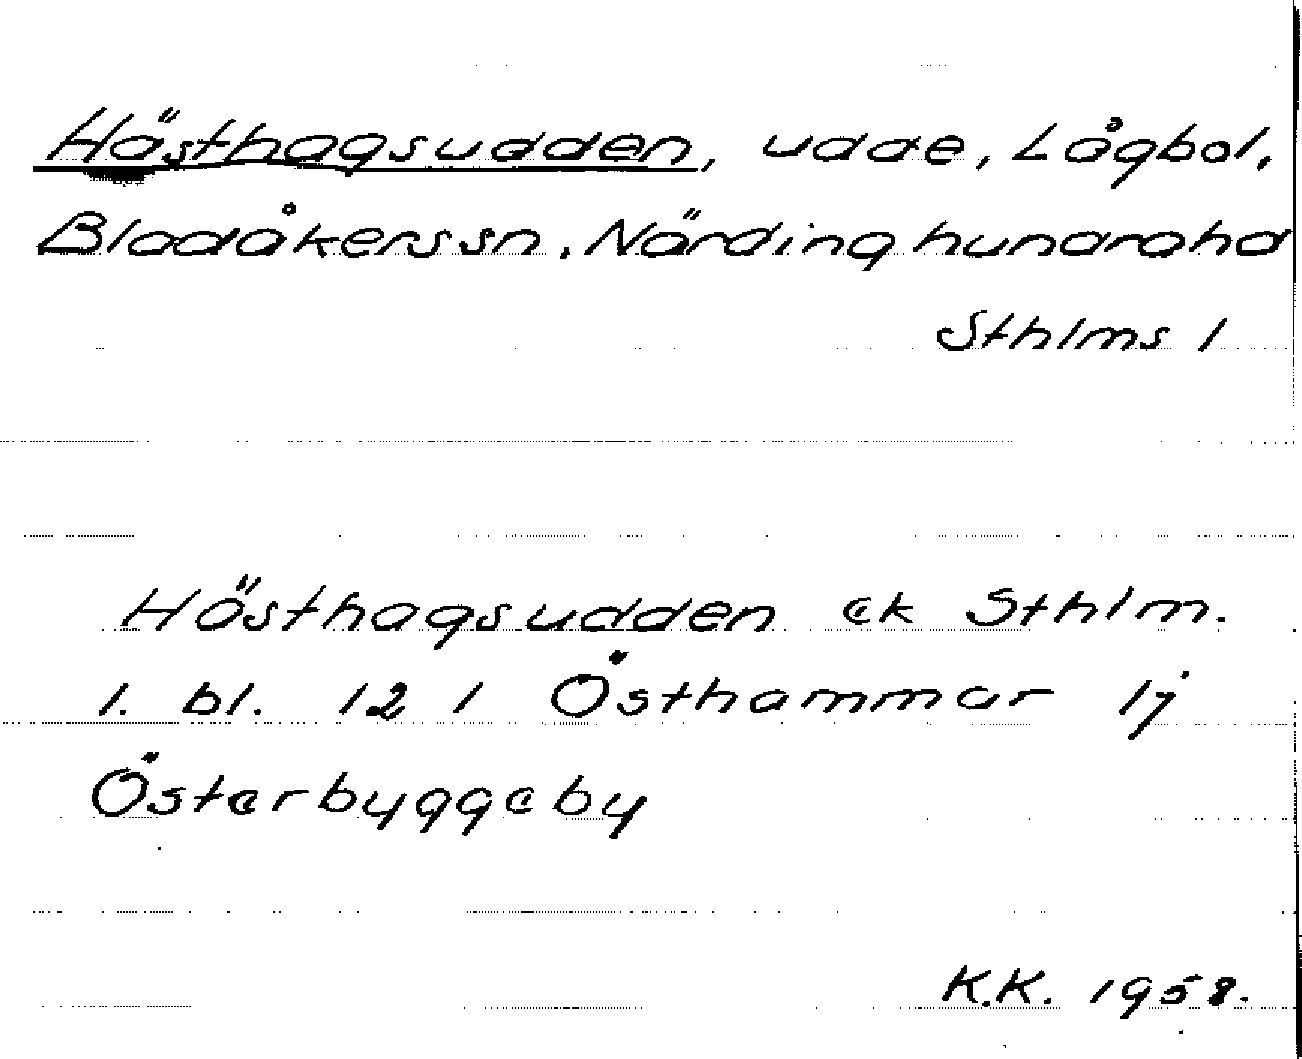 Hästhagsudden, udde, Lågbol,
Bladåkerssn, Närdinghundrahd
Sthlms l
Hästhagsudden ek Sthlm.
l. bl. 12 1 Östhammar lj
Österbyggeby
K.K. 1958.